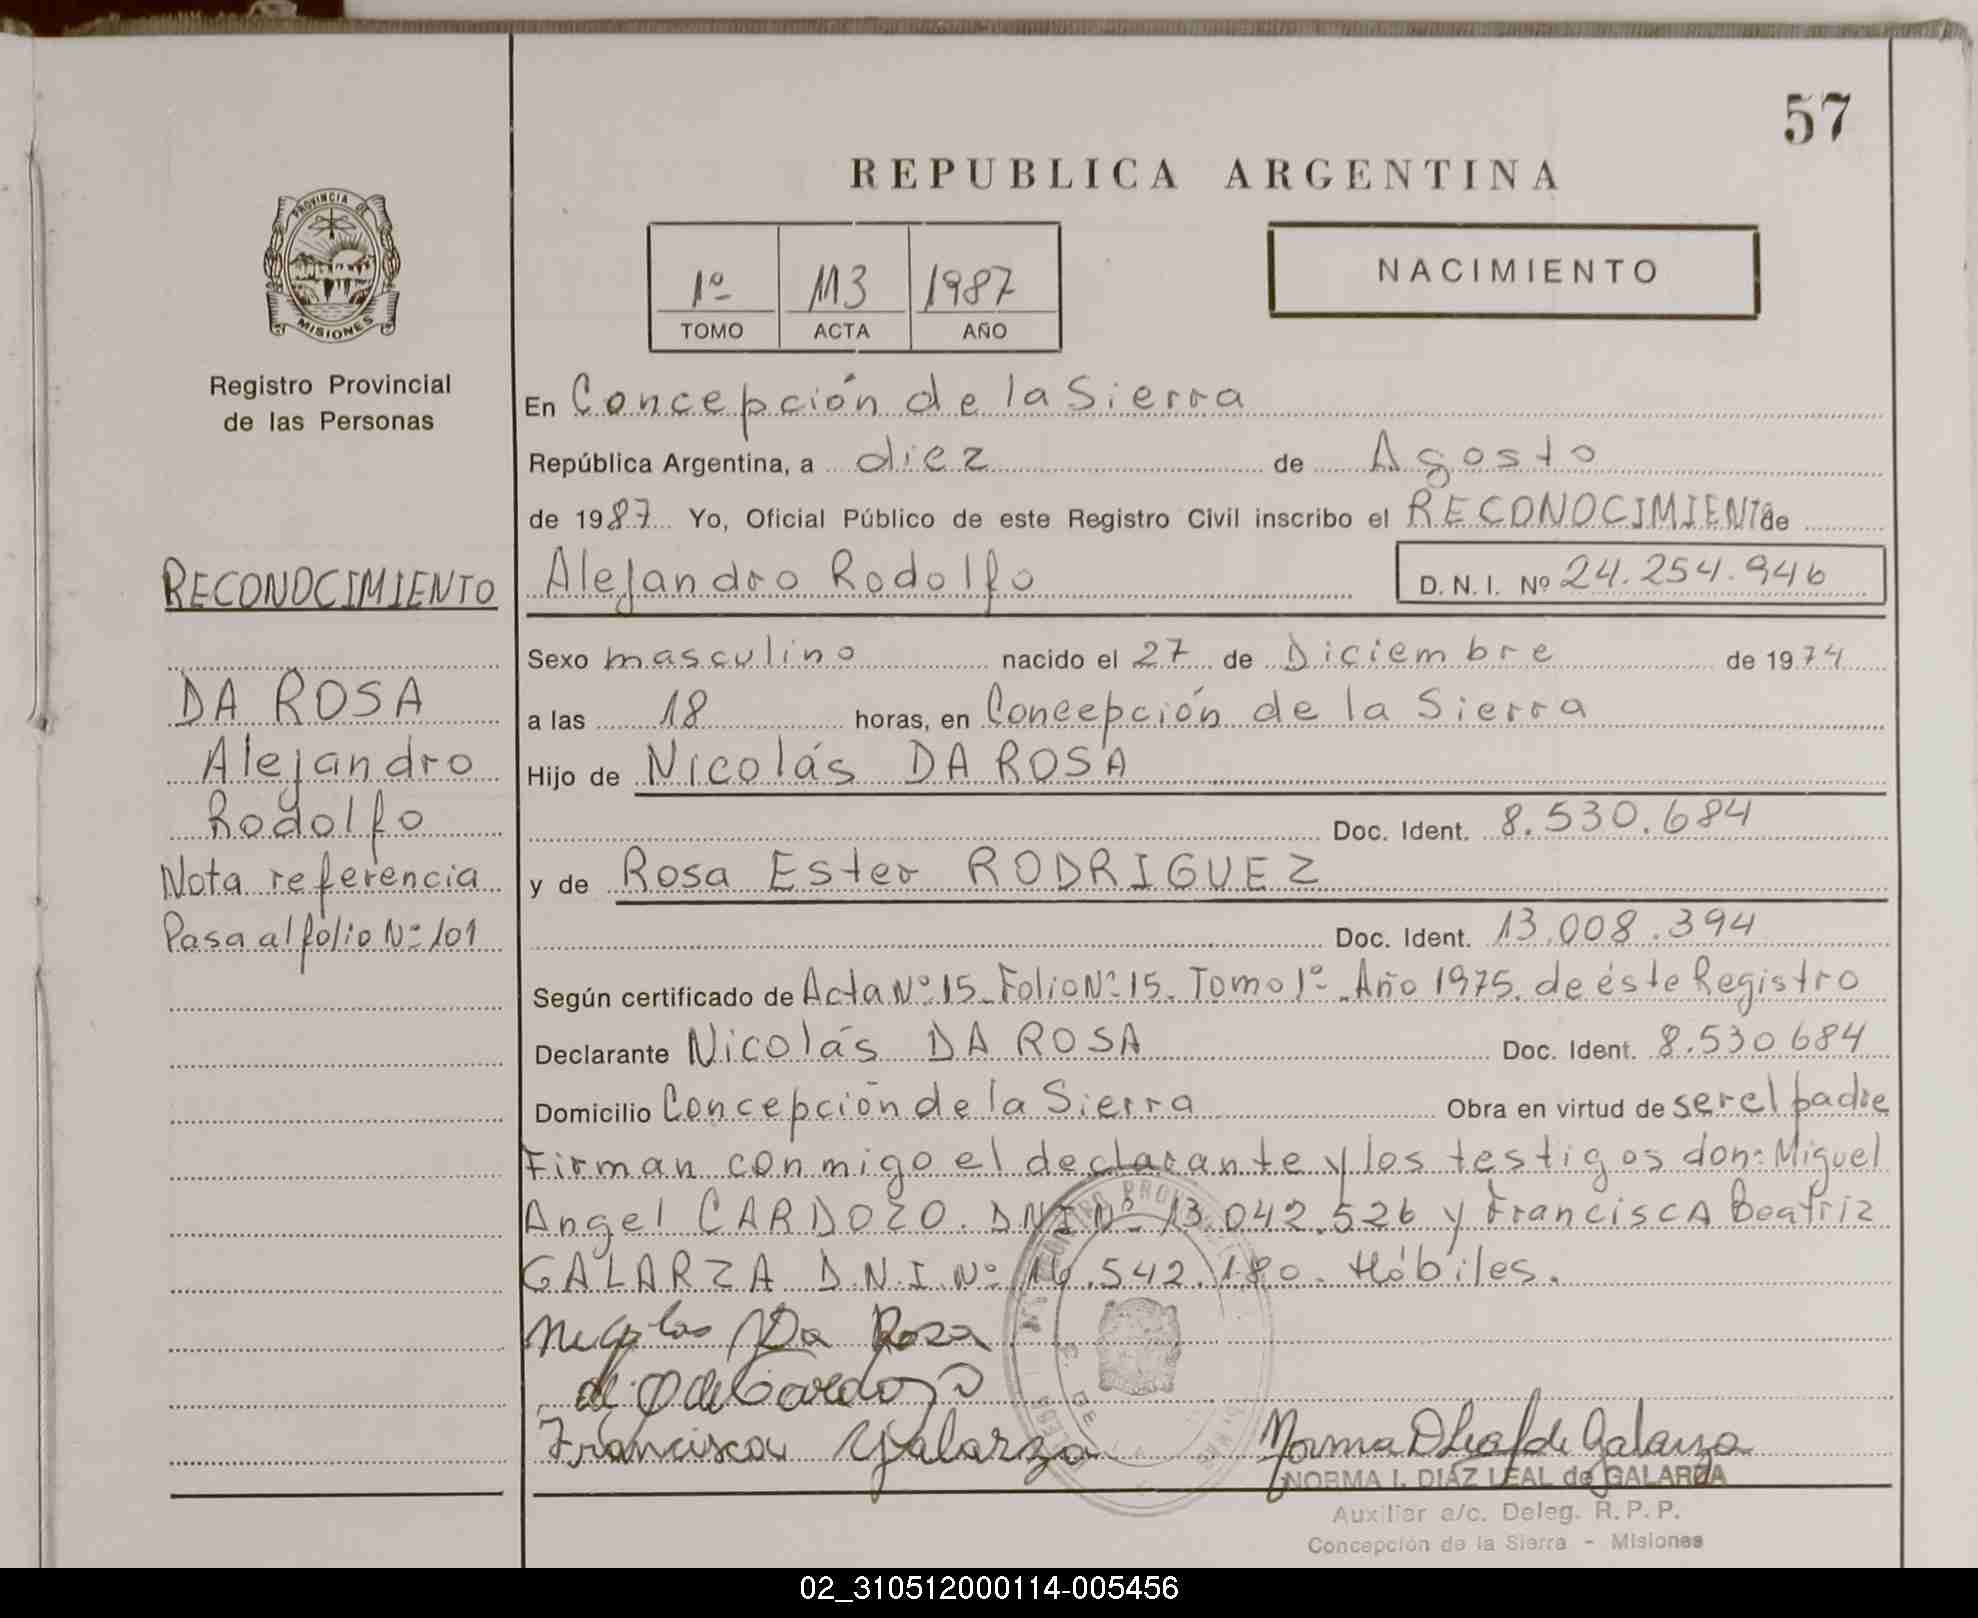 57
REPUBLICA ARGENTINA
PROVINCIA DE
MISIONES
1º 113 1987
TOMO ACTA AÑO
NACIMIENTO
Registro Provincial
de las Personas
En Concepción de la Sierra
República Argentina, a diez de Agosto
de 1987 Yo, Oficial Público de este Registro Civil inscribo el RECONOCIMIENTO de
Alejandro Rodolfo D.N.I. Nº 24.254.946
RECONOCIMIENTO
DA ROSA
Alejandro
Rodolfo
Nota referencia
Pasa al folio Nº 101
Sexo masculino nacido el 27 de Diciembre de 1974
a las 18 horas, en Concepción de la Sierra
Hijo de Nicolás DA ROSA
Doc. Ident. 8.530.684
y de Rosa Ester RODRIGUEZ
Doc. Ident. 13.008.394
Según certificado de Acta Nº 15. Folio Nº 15. Tomo 1º. Año 1975. de éste Registro
Declarante Nicolás DA ROSA Doc. Ident. 8.530.684
Domicilio Concepción de la Sierra Obra en virtud de ser el padre
Firman conmigo el declarante y los testigos don: Miguel
Angel CARDOZO. DNI Nº 13.042.526 y Francisca Beatriz
GALARZA D.N.I. Nº 16.542.180. Hábiles.
Nicolas Da Rosa
Cardozo
Francisca Galarza
Norma D Leal de Galarza
NORMA I. DIAZ LEAL de GALARZA
Auxiliar a/c. Deleg. R.P.P.
Concepción de la Sierra - Misiones
02_310512000114-005456